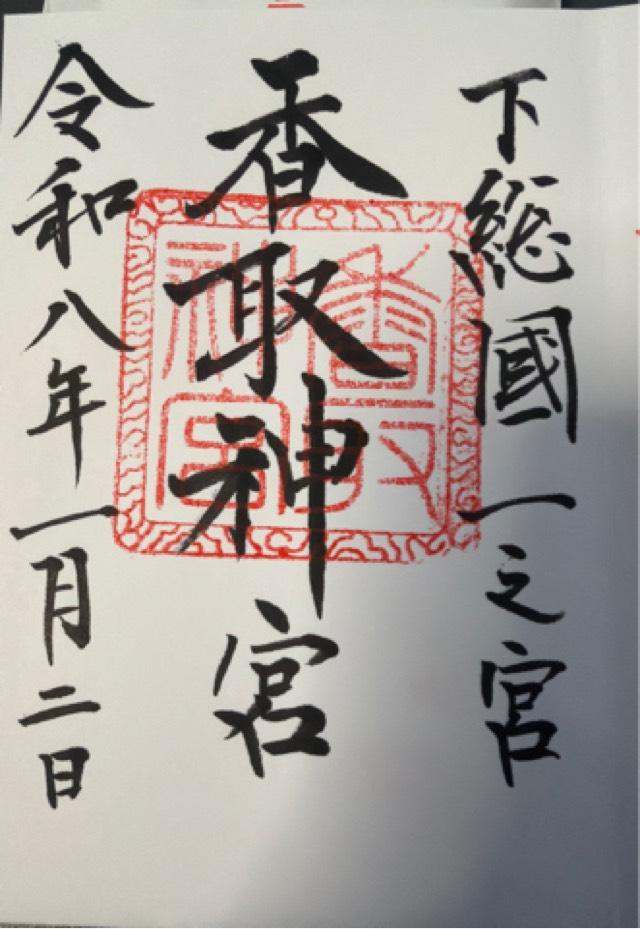 下総國一之宮
香取神宮
香取神宮
令和八年一月二日